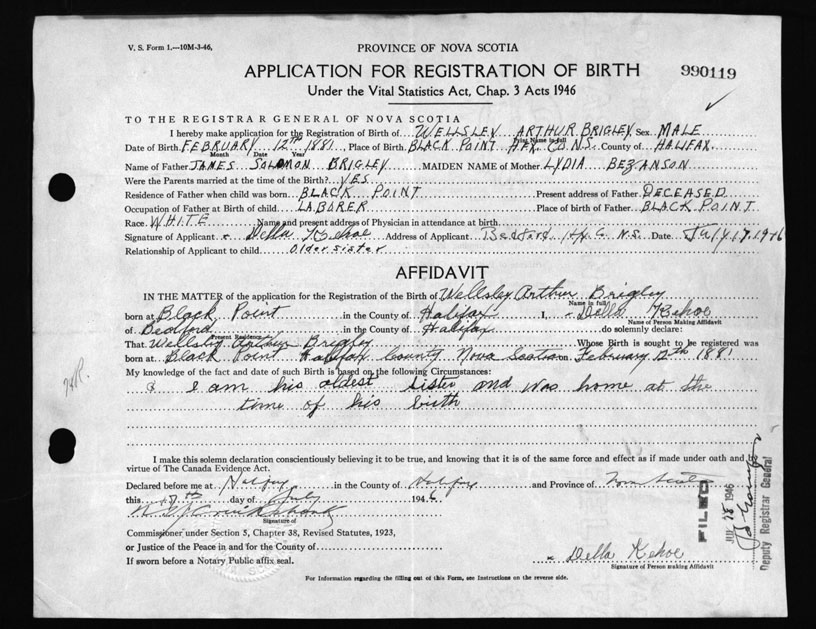 V. S. Form 1.—10M-3-46,
PROVINCE OF NOVA SCOTIA
APPLICATION FOR REGISTRATION OF BIRTH
990119
Under the Vital Statistics Act, Chap. 3 Acts 1946
TO THE REGISTRAR GENERAL OF NOVA SCOTIA
I hereby make application for the Registration of Birth of WELLSLEY ARTHUR BRIGLEY Sex MALE
Print Name in full
Date of Birth FEBRUARY 12TH 1881 Place of Birth BLACK POINT HFX. CO. N.S. County of HALIFAX
Month Date Year
Name of Father JAMES SOLOMON BRIGLEY MAIDEN NAME of Mother LYDIA BEZANSON
Were the Parents married at the time of the Birth? YES
Residence of Father when child was born BLACK POINT Present address of Father DECEASED
Occupation of Father at Birth of child LABORER Place of birth of Father BLACK POINT
Race WHITE Name and present address of Physician in attendance at birth
Signature of Applicant x Della Kehoe Address of Applicant Bedford, Hfx Co. N.S. Date July 17, 1946
Relationship of Applicant to child older sister
AFFIDAVIT
IN THE MATTER of the application for the Registration of the Birth of Wellsley Arthur Brigley
Name in full
born at Black Point in the County of Halifax I, x Della Kehoe
Name of Person Making Affidavit
of Bedford in the County of Halifax do solemnly declare:
Present Residence
That Wellsley Arthur Brigley Whose Birth is sought to be registered was
born at Black Point Halifax County Nova Scotia on February 12th 1881
My knowledge of the fact and date of such Birth is based on the following Circumstances:
I am his oldest sister and was home at the
time of his birth
I make this solemn declaration conscientiously believing it to be true, and knowing that it is of the same force and effect as if made under oath and by
virtue of The Canada Evidence Act.
Declared before me at Halifax in the County of Halifax and Province of Nova Scotia
this 17th day of July 1946
Signature of
Commissioner under Section 5, Chapter 38, Revised Statutes, 1923,
or Justice of the Peace in and for the County of
If sworn before a Notary Public affix seal.
x Della Kehoe
Signature of Person making Affidavit
For Information regarding the filling out of this Form, see Instructions on the reverse side.
FILED
1946
Deputy Registrar General